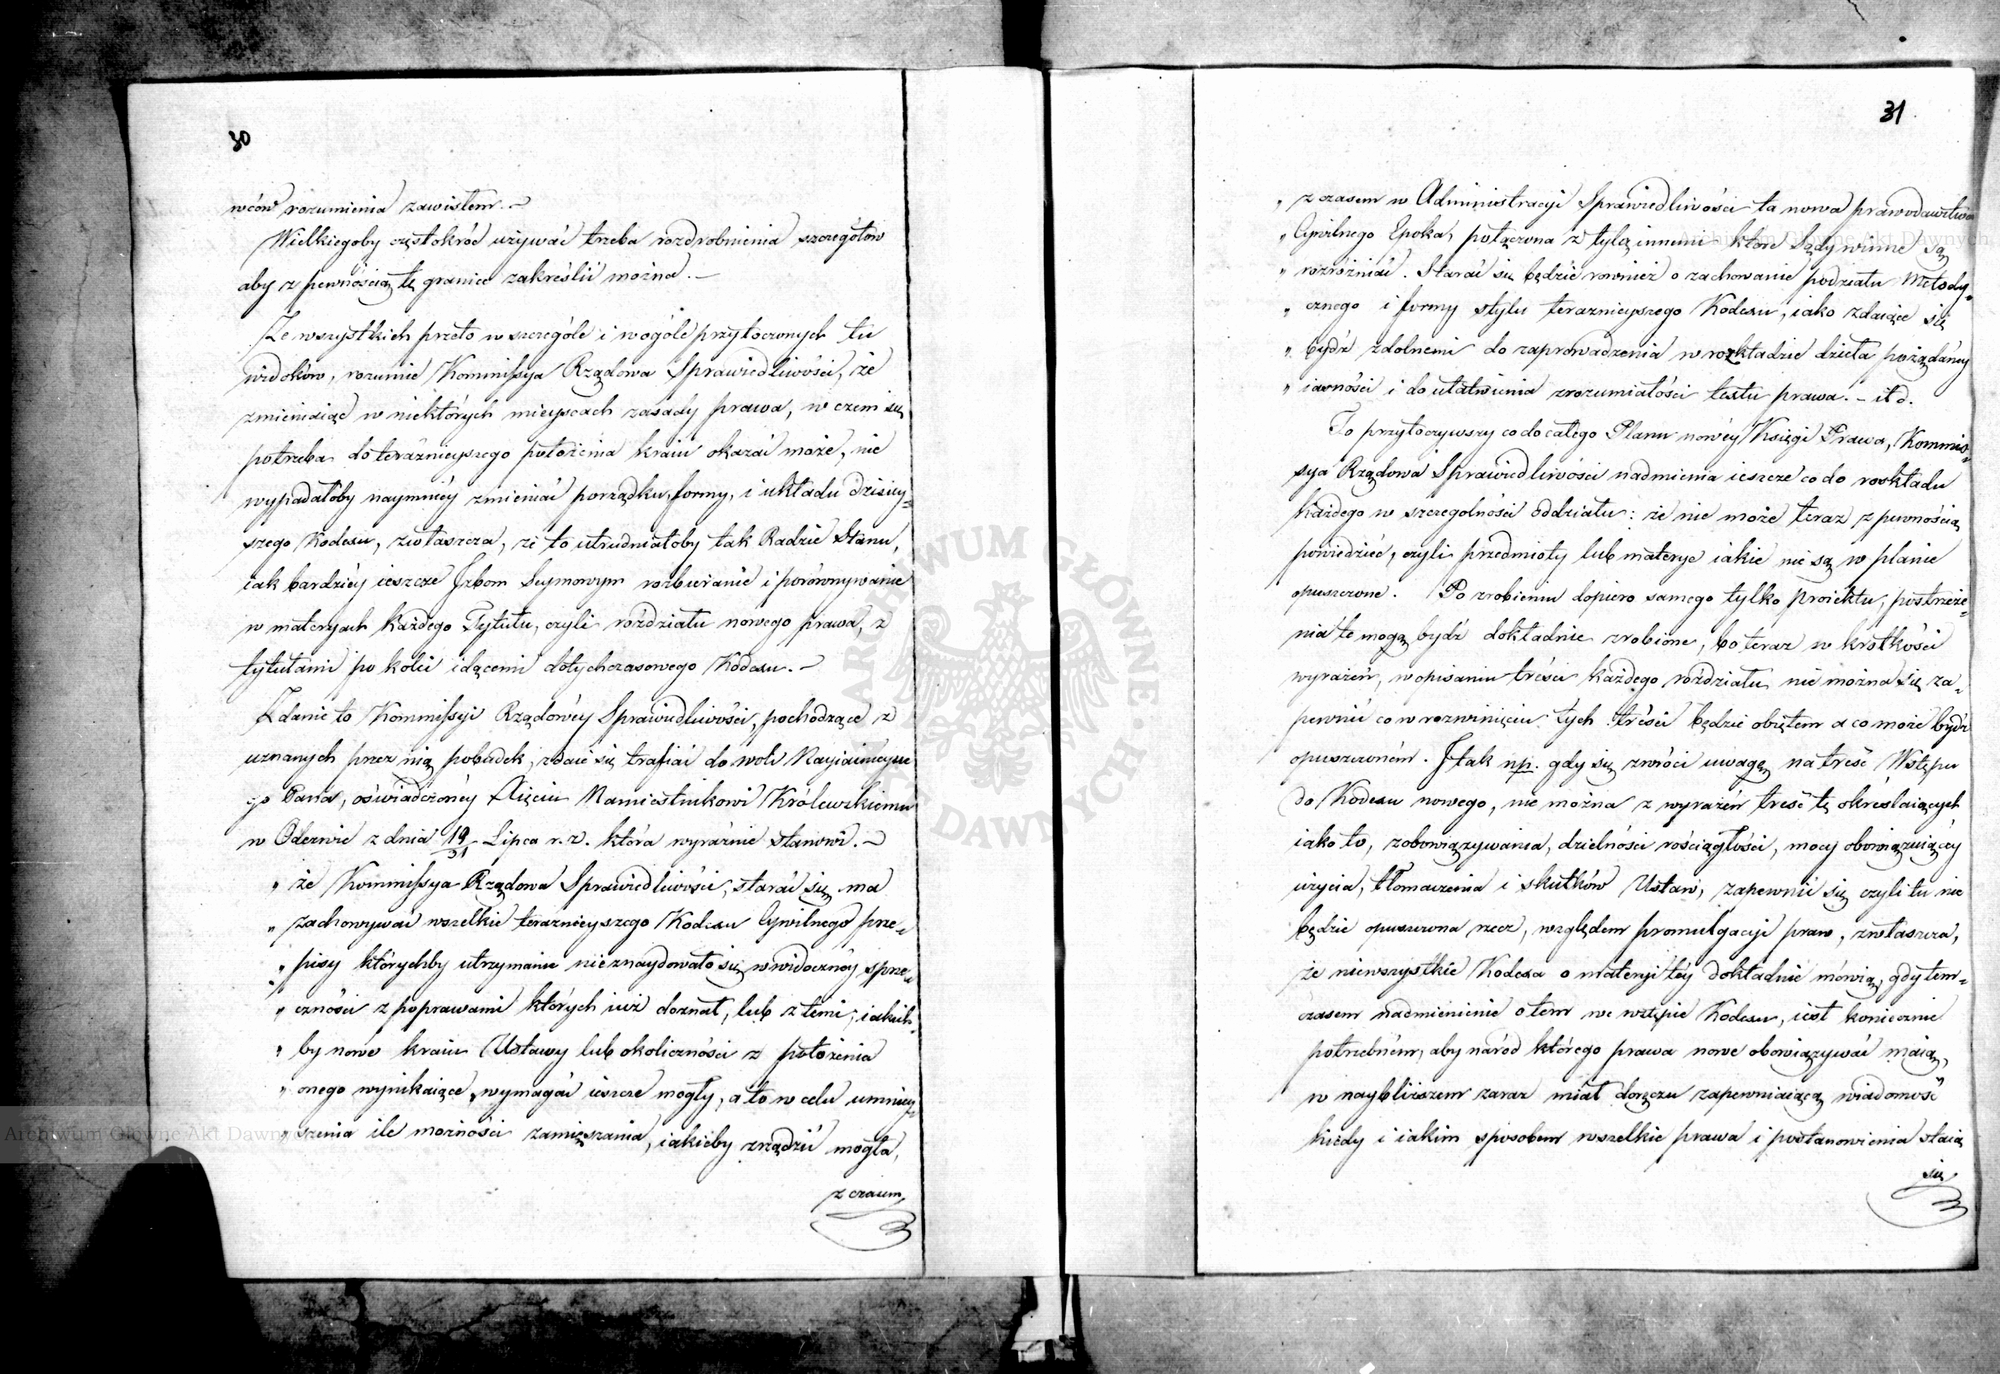 30
wców rozumienia zawisłem. –
Wielkiegoby częstokroć używać trzeba rozdrobnienia szczegółów
aby z pewnością tę granicę zakreślić można. –
Ze wszystkich przeto w szczególe i w ogóle przytoczonych tu
widoków, rozumie Kommissya Rządowa Sprawiedliwości, że
zmieniaiąc w niektórych mieyscach zasady prawa, w czem się
potrzeba do teraźnieyszego położenia kraiu okazać może, nie
wypadałoby naymniéy zmieniać porządku, formy, i układu dzisiey-
szego Kodexu, zwłaszcza, że to utrudniałoby tak Radzie Stanu,
iak bardziéy ieszcze Izbom Seymowym rozbieranie i porównywanie
w materyach każdego Tytułu, czyli rozdziału nowego prawa, z
tytułami po kolei idącemi dotychczasowego Kodexu. –
Zdanie to Kommissyi Rządowéy Sprawiedliwości, pochodzące z
uznanych przez nią pobudek, zdaie się trafiać do woli Nayiaśnieysze-
go Pana, oświadczonéy Xięciu Namiestnikowi Królewskiemu
w Odezwie z dnia 19/31 Lipca r. z. która wyraźnie stanowi. –
„ że Kommissya Rządowa Sprawiedliwości, starać się ma
„ zachowywać wszelkie teraźnieyszego Kodexu Cywilnego prze-
„ pisy którychby utrzymanie nieznaydowało się w widocznéy sprze-
„ czności z poprawami których iuż doznał, lub z temi, iakich-
„ by nowe kraiu Ustawy lub okoliczności z położenia
„ onego wynikaiące, wymagać ieszcze mogły, a to w celu umniey-
„ szenia ile możności zamięszania, iakieby zrządzić mogła,
z czasem
31
„ z czasem w Administracyi Sprawiedliwości ta nowa prawodawstwa
„ Cywilnego Epoka, połączona z tylą innemi które Sądy winne są
„ rozróżniać. Starać się będzie również o zachowanie podziału Metody-
„ cznego i formy stylu teraznieyszego Kodexu, iako zdaiące się
„ bydź zdolnemi do zaprowadzenia w rozkładzie dzieła pożądanéy
„ iawności i do ułatwienia zrozumiałości textu prawa. – itd.
To przytoczywszy co do całego Planu nowéy Księgi Prawa, Kommis-
sya Rządowa Sprawiedliwości nadmienia ieszcze co do rozkładu
każdego w szczególności oddziału: że nie może teraz z pewnością
powiedzieć, czyli przedmioty lub materye iakie nie są w planie
opuszczone. Po zrobieniu dopiero samego tylko proiektu, postrzeże-
nia te mogą bydź dokładnie zrobione, bo teraz w krótkości
wyrażeń, w opisaniu treści każdego rozdziału, nie można się za-
pewnić co w rozwinięciu tych treści będzie obiętem a co może bydź
opuszczoném. I tak np. gdy się zwróci uwagę na treść Wstępu
do Kodexu nowego, nie można z wyrażeń treść tę określaiących
iako to, zobowiązywania, dzielności rościągłości, mocy obowiązuiącéy
użycia, tłomaczenia i skutków Ustaw, zapewnić się czyli tu nie
będzie opuszczona rzecz, względem promulgacyi praw, zwłaszcza,
że niewszystkie Kodexa o materyi téy dokładnie mówią, gdy tem-
czasem nadmienienie o tem we wstępie Kodexu, iest koniecznie
potrzebném, aby naród którego prawa nowe obowiązywać maią,
w naybliższem zaraz miał doręczu zapewniaiącą wiadomość
kiedy i iakim sposobem wszelkie prawa i postanowienia staią
się
ARCHIWUM GŁÓWNE AKT DAWNYCH
Archiwum Główne Akt Dawnych
Archiwum Główne Akt Dawnych